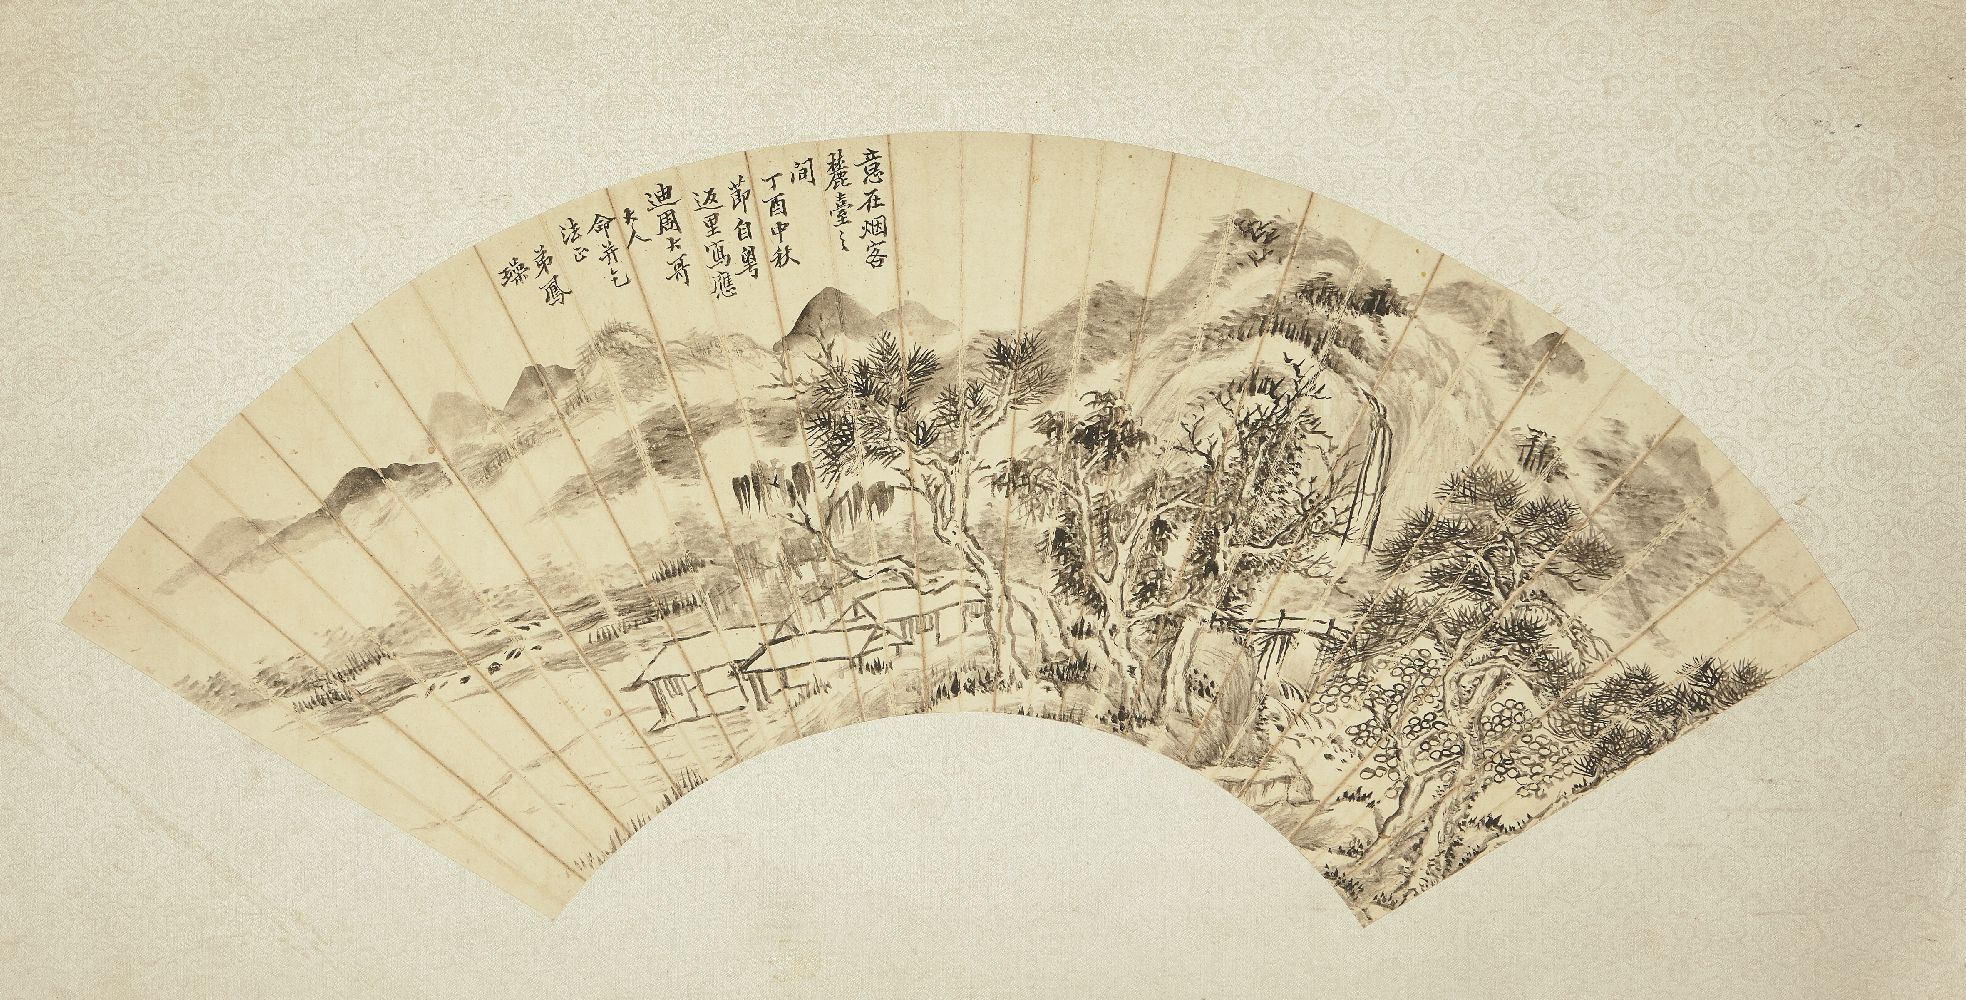 意在烟客
麓臺之
间
丁酉中秋
節自粤
返里寫應
迪周大哥
大人
命并乞
法正
弟鳳
璪